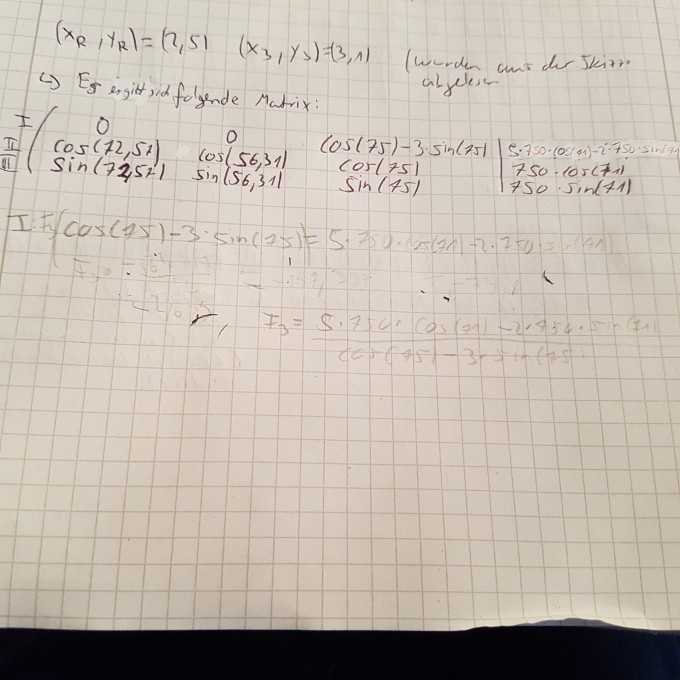 (xR, yR) = (2,5) (x3, y3) = (3,1) (wurden aus der Skizze
abgelesen
↳ Es ergibt sich folgende Matrix:
I 0 0 cos(75) - 3·sin(75) | 5·750·cos(71) - 2·750·sin(71)
II cos(72,51) cos(56,31) cos(75) | 750·cos(71)
III sin(72,51) sin(56,31) sin(75) | 750·sin(71)
I: F3(cos(75) - 3·sin(75)) = 5·750·cos(71) - 2·750·sin(71)
F3 = 5·750·cos(71) - 2·750·sin(71)
cos(75) - 3·sin(75)